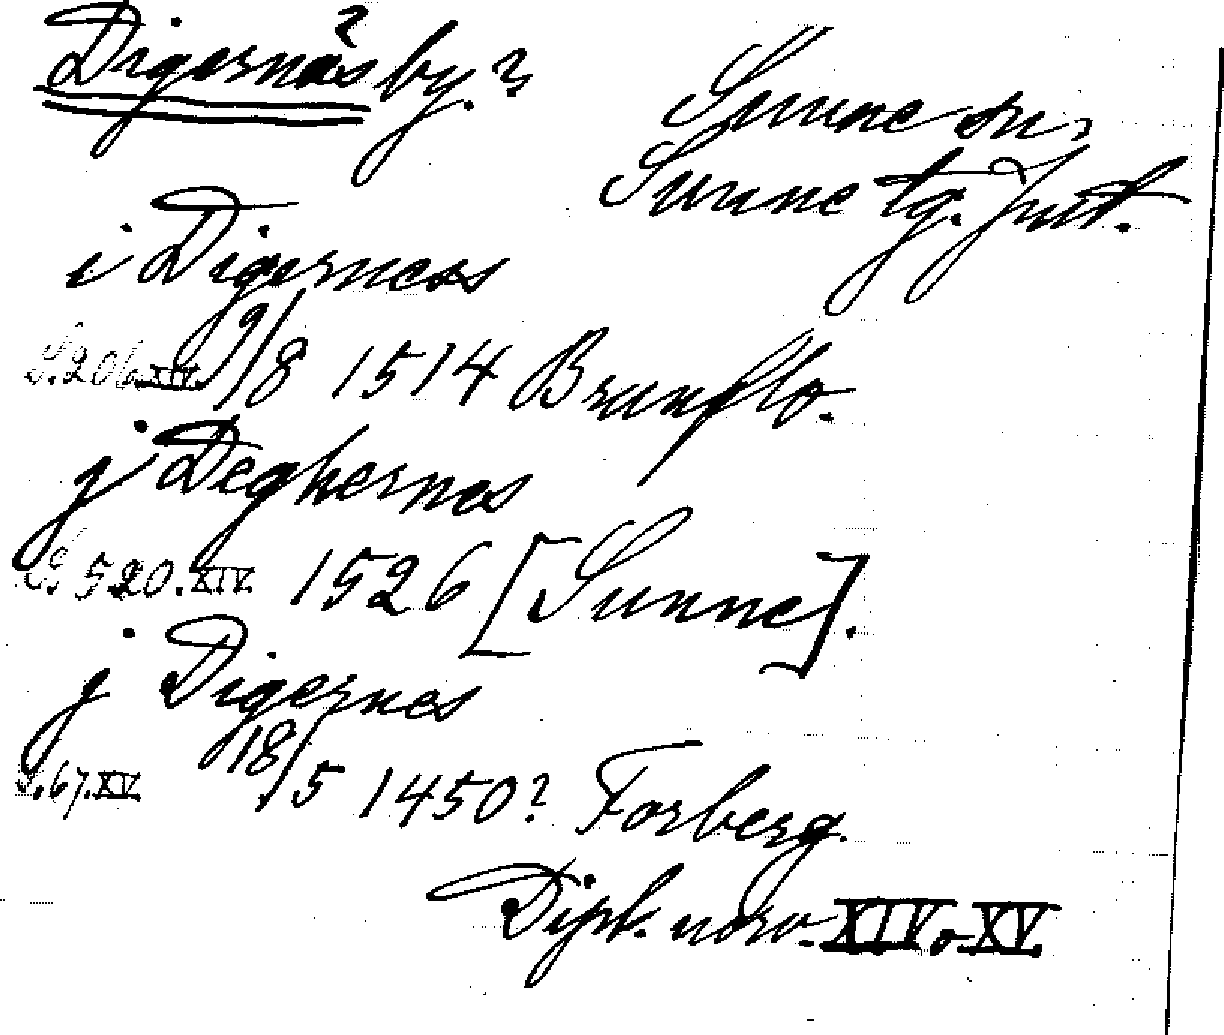 Digernäs by.?
?
Sunne sn,
Sunne tg. Jmt.
i Digerness
S. 206 XIV. 9/8 1514 Brunflo.
j Deghernes
S. 520. XIV. 1526 [Sunne].
j Digernes
S. 67. XV. 18/5 1450? Forberg.
Dipl. norv. XIV o XV.